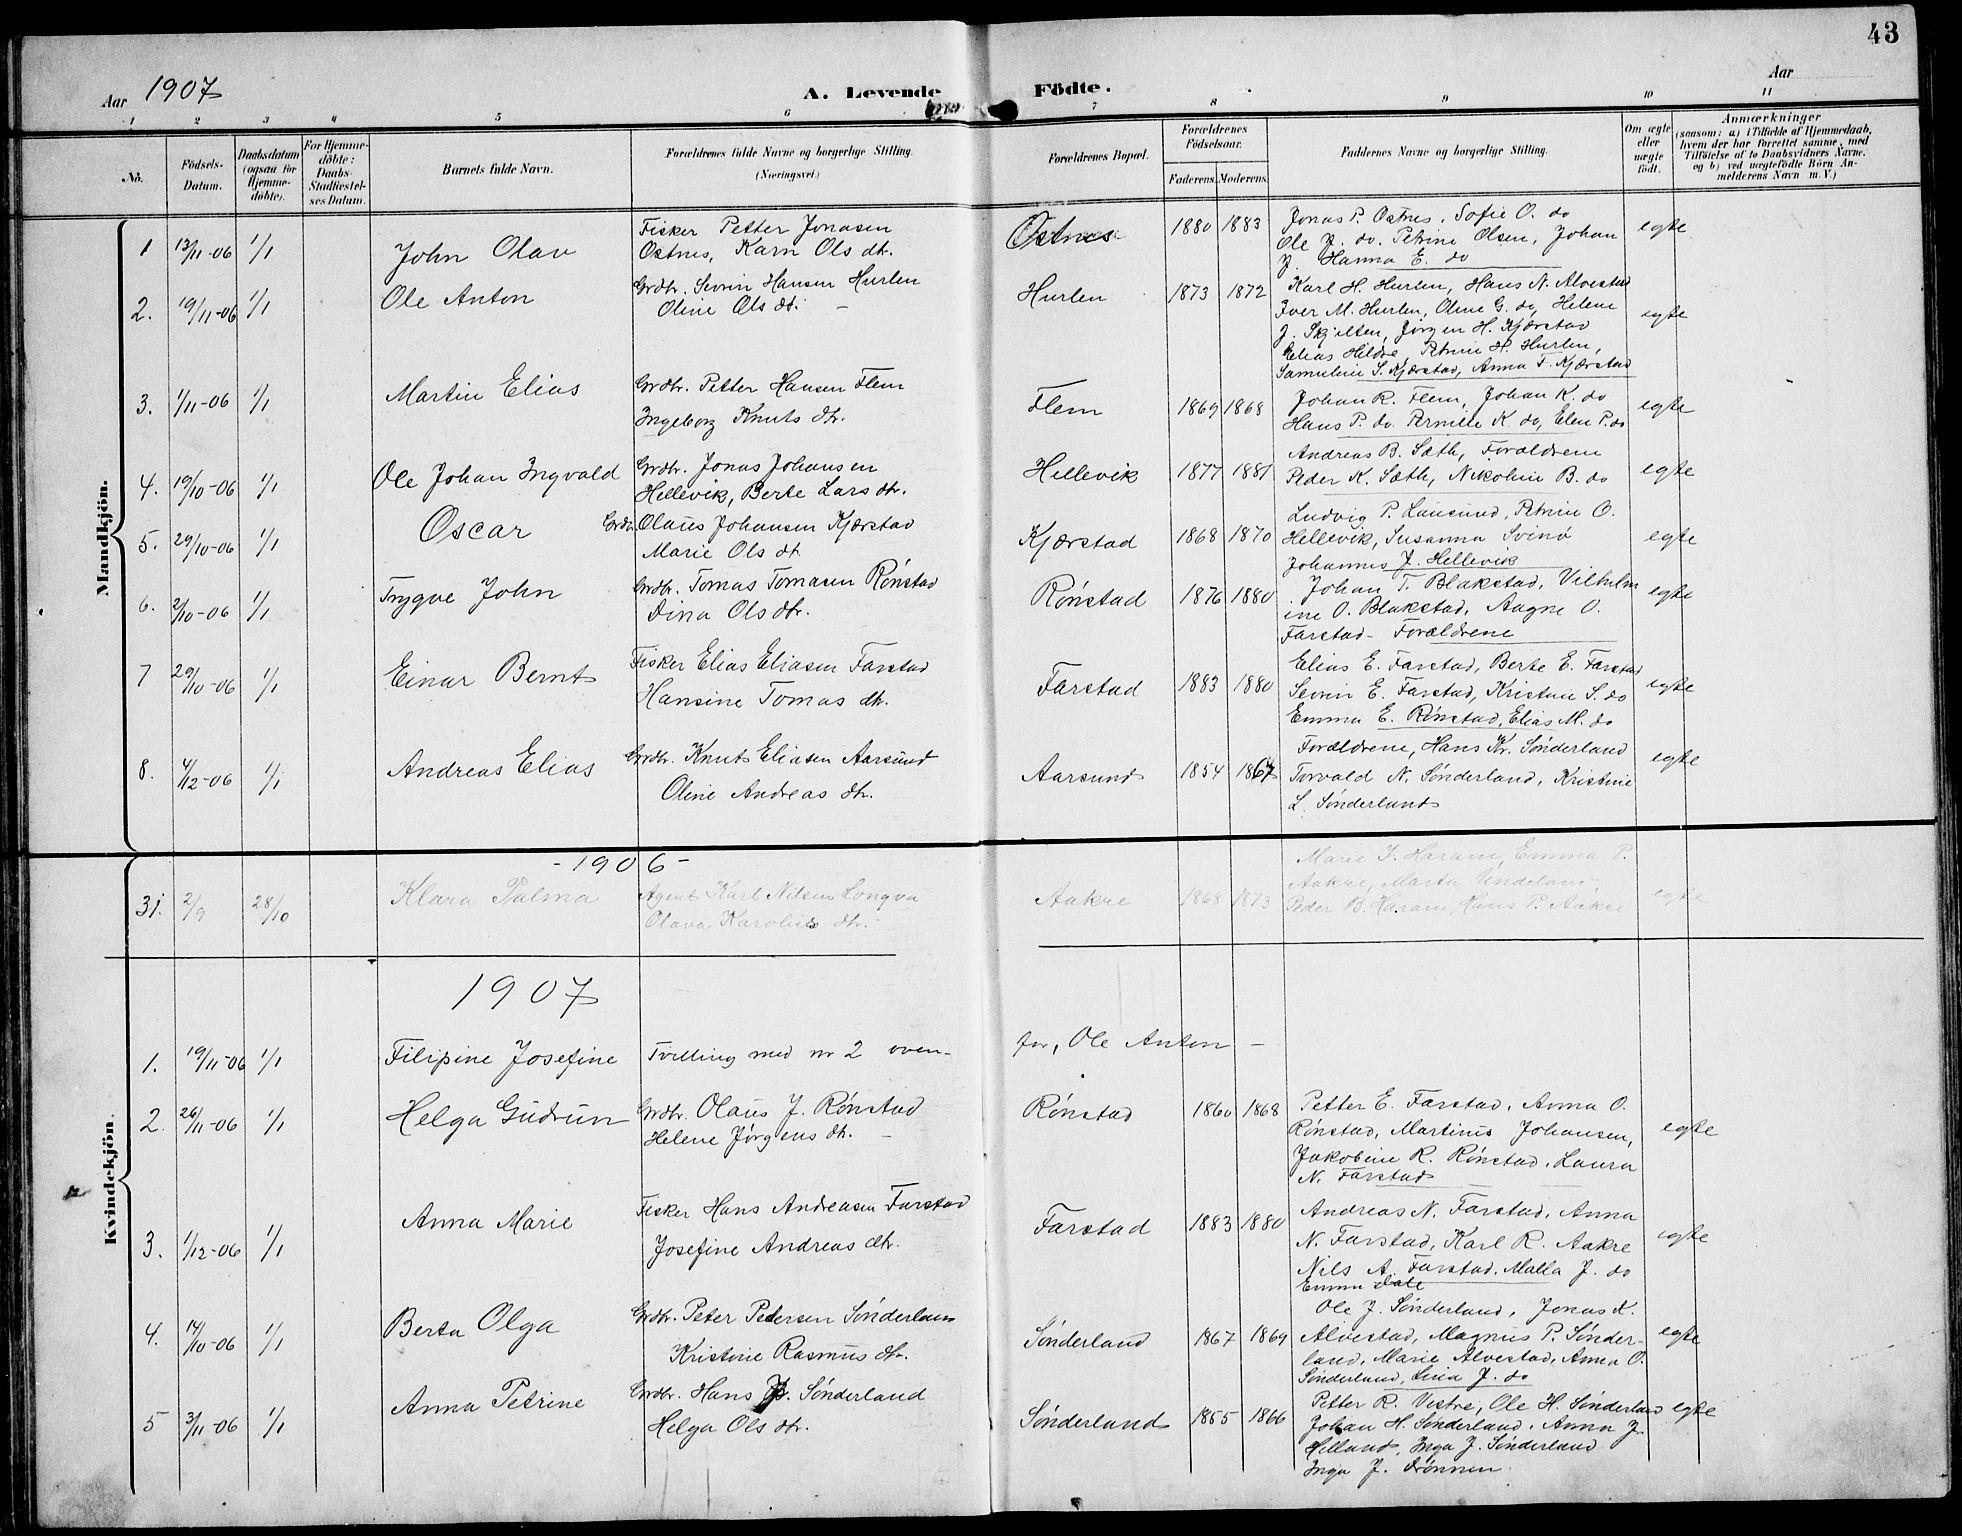 43
Aar 1907
A. Levende
Födte.
Aar
1 2 3 4 5 6 7 8 9 10 11
No.
Födsels-Datum.
Daabsdatum (ogsaa for Hjemme-döbte).
For Hjemme-döbte: Daabs-Stadfæstel-ses Datum.
Barnets fulde Navn.
Forældrenes fulde Navne og borgerlige Stilling.
(Næringsvei.)
Forældrenes Bopæl.
Forældrenes Födselsaar.
Faderens. Moderens.
Faddernes Navne og borgerlige Stilling.
Om ægte eller uægte födt.
Anmærkninger
(saasom: a) i Tilfælde af Hjemmedaab, hvem der har forrettet samme, med Tilföielse af to Daabsvidners Navne, og b) ved uegtefödte Börn An-melderens Navn m. V.)
Mandkjön.
1 13/11-06 1/1 John Olav
Fisker Petter Jonasen
Ostnes, Karn Ols dtr.
Ostnes 1880 1883
Jonas P. Ostnes, Sofie O. do
Ole J. do. Petrine Olsen, Johan
J. Hanna E. do
egte
2. 19/11-06 1/1 Ole Anton
Grdbr. Sevrin Hansen Hurlen
Oline Ols dt. –
Hurlen 1873 1872
Karl H. Hurlen, Hans N. Alvestad
Iver M. Hurlen, Oline G. do, Helene
J. Skjelten, Jørgen H. Kjærstad
Elias Hildre, Petrine H. Hurlen,
Samuline S. Kjærstad, Anna F. Kjærstad
egte
3. 1/11-06 1/1 Martin Elias
Grdbr. Petter Hansen Flem
Ingeborg Knuts dtr.
Flem 1869 1868
Johan R. Flem, Johan K. do
Hans P. do. Pernille K. do, Elen P. do
egte
4. 19/10-06 1/1 Ole Johan Ingvald
Grdbr. Jonas Johansen
Hellevik, Berte Lars dtr.
Hellevik 1877 1881
Andreas B. Sæth, Forældrene
Peder K. Sæth, Nikoline B. do
egte
5. 29/10-06 1/1 Oscar
Grdbr. Olaus Johansen Kjærstad
Marie Ols dt.
Kjærstad 1868 1870
Ludvig P. Lausund, Petrine O.
Hellevik, Susanna Svinø
Johannes J. Hellevik
egte
6. 2/10-06 1/1 Trygve John
Grdbr. Tomas Tomasen Rønstad
Dina Ols dtr.
Rønstad 1876 1880
Johan T. Blakstad, Vilhelm
ine O. Blakstad, Aagne O.
Farstad - Forældrene
egte
7 29/10-06 1/1 Einar Bernt
Fisker Elias Eliasen Farstad
Hansine Tomas dtr.
Farstad 1883 1880
Elias E. Farstad, Berte E. Farstad
Sevrin E. Farstad, Kristine S. do
Emma E. Rønstad, Elias M. do
egte
8. 4/12-06 1/1 Andreas Elias
Grdbr. Knut Eliasen Aarsund
Oline Andreas dtr.
Aarsund 1854 1867
Forældrene, Hans Kr. Sønderland
Torvald N. Sønderland, Kristine
L. Sønderland
egte
- 1906 -
31. 2/9 28/10 Klara Palma
Agent Karl Nilsen Longva
Olava Karolius dtr.
Aakre 1868 1873
Marie J. Haram, Emma P.
Aakre, Marta Undeland,
Peder B. Haram, Hans P. Aakre
egte
1907
Kvindekjön.
1. 19/11-06 1/1 Filipine Josefine
Tvilling med nr 2 oven-
for, Ole Anton –
2. 26/11-06 1/1 Helga Gudrun
Grdbr. Olaus J. Rønstad
Helene Jørgens dtr. –
Rønstad 1860 1868
Petter E. Farstad, Anna O.
Rønstad, Martinus Johansen,
Jakobine R. Rønstad, Laura
N. Farstad
egte
3. 1/12-06 1/1 Anna Marie
Fisker Hans Andreasen Farstad
Josefine Andreas dtr.
Farstad 1883 1880
Andreas N. Farstad, Anna
N. Farstad, Karl R. Aakre
Nils A. Farstad, Malla J. do
Emma
egte
4. 14/10-06 1/1 Berta Olga
Grdbr. Peter Pedersen Sønderland
Kristine Rasmus dtr.
Sønderland 1867 1869
Ole J. Sønderland, Jonas K.
Alvestad, Magnus P. Sønder-
land, Marie Alvestad, Anna O.
Sønderland, Lina J. do
egte
5 3/11-06 1/1 Anna Petrine
Grdbr. Hans P. Sønderland
Helga Ols dtr.
Sønderland 1855 1866
Petter R. Vestre, Ole H. Sønderland
Johan H. Sønderland, Anna J.
Helland, Inga J. Sønderland
Inga J. Drønnen
egte